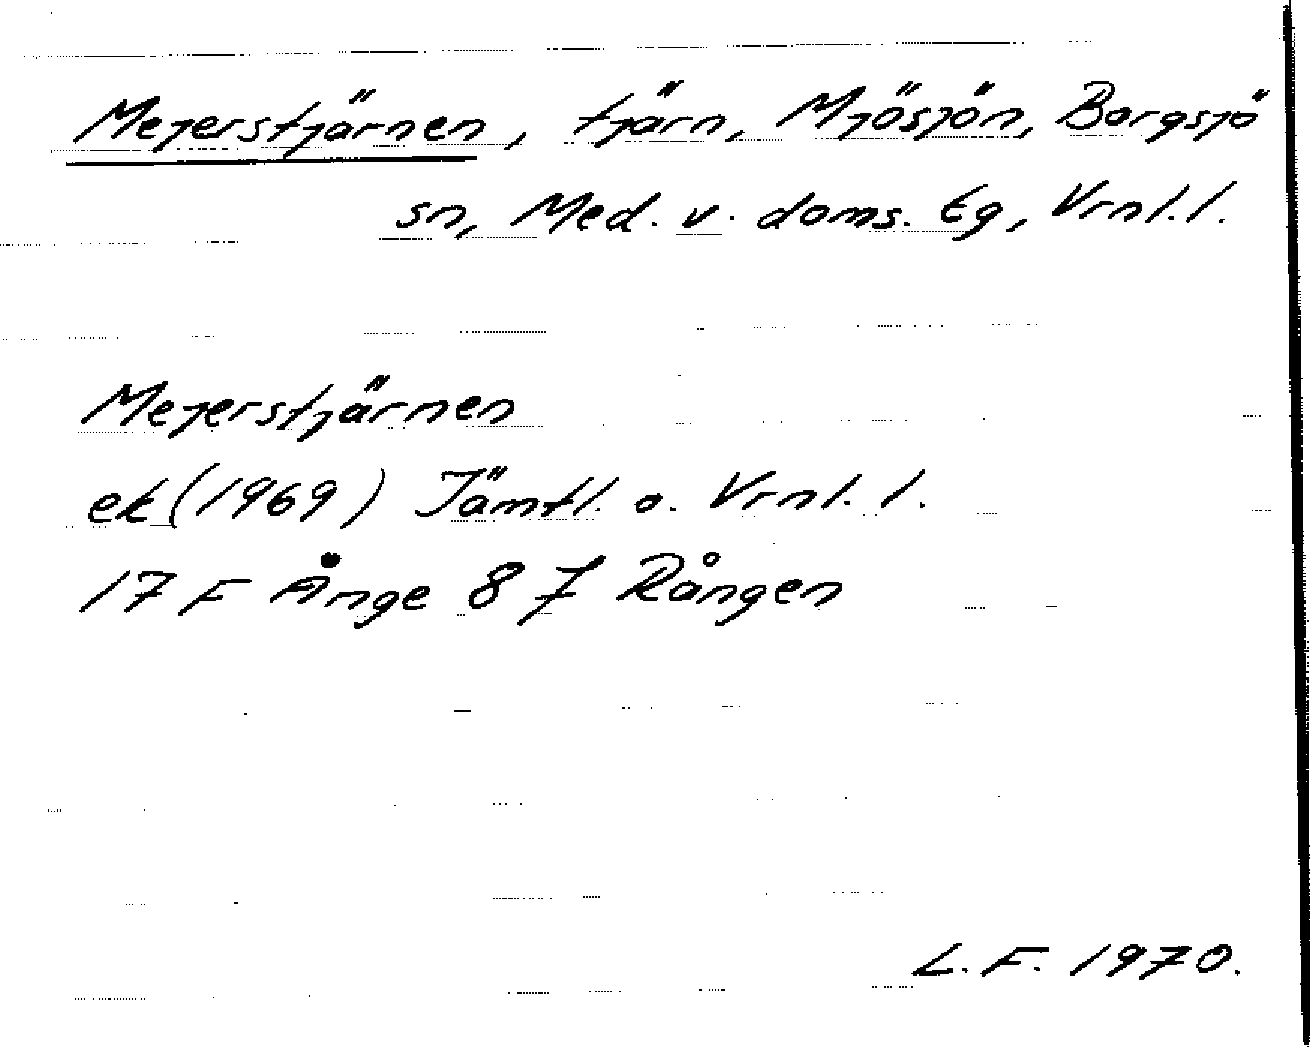 Mejerstjärnen, tjärn, Mjösjön, Borgsjö
sn, Med. v. doms. tg, Vrnl.l.
Mejerstjärnen
ek (1969) Jämtl. o. Vrnl. l.
17 F Ånge 8 j Rången
L. F. 1970.